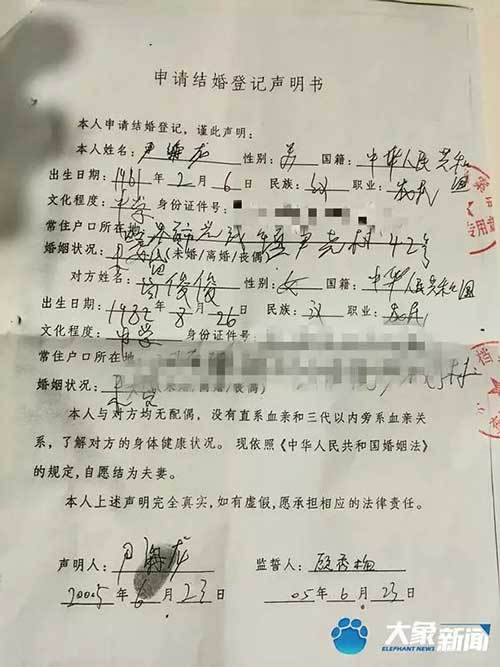 申请结婚登记声明书
本人申请结婚登记,谨此声明:
本人姓名: 尹 龙 性别: 男 国籍: 中华人民共和国
出生日期: 1961 年 2 月 6 日 民族: 汉 职业: 农民
文化程度: 中学 身份证件号:
常住户口所在地: 村42号
婚姻状况: (未婚/离婚/丧偶)
对方姓名: 俊俊 性别: 女 国籍: 中华人民共和国
出生日期: 1982 年 8 月 26 日 民族: 汉 职业: 农民
文化程度: 中学 身份证件号:
常住户口所在地 村
婚姻状况: (未婚/离婚/丧偶)
本人与对方均无配偶,没有直系血亲和三代以内旁系血亲关
系,了解对方的身体健康状况。现依照《中华人民共和国婚姻法》
的规定,自愿结为夫妻。
本人上述声明完全真实,如有虚假,愿承担相应的法律责任。
声明人: 尹海龙 监誓人: 顾秀梅
2005 年 6 月 23 日 05 年 6 月 23 日
专用章
大象新闻
ELEPHANT NEWS